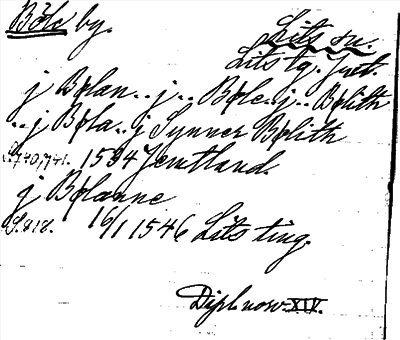 Böle by.
Lits sn.
Lits tg. Jmt.
j Bølan.. j.. Bøle.. j.. Bølith
..j Bøla.. j Synner Bølith
S. 740, 741. 1534 Jemtland.
j Bølanne
S. 818. 16/1 1546 Lits ting.
Dipl. norv. XIV.